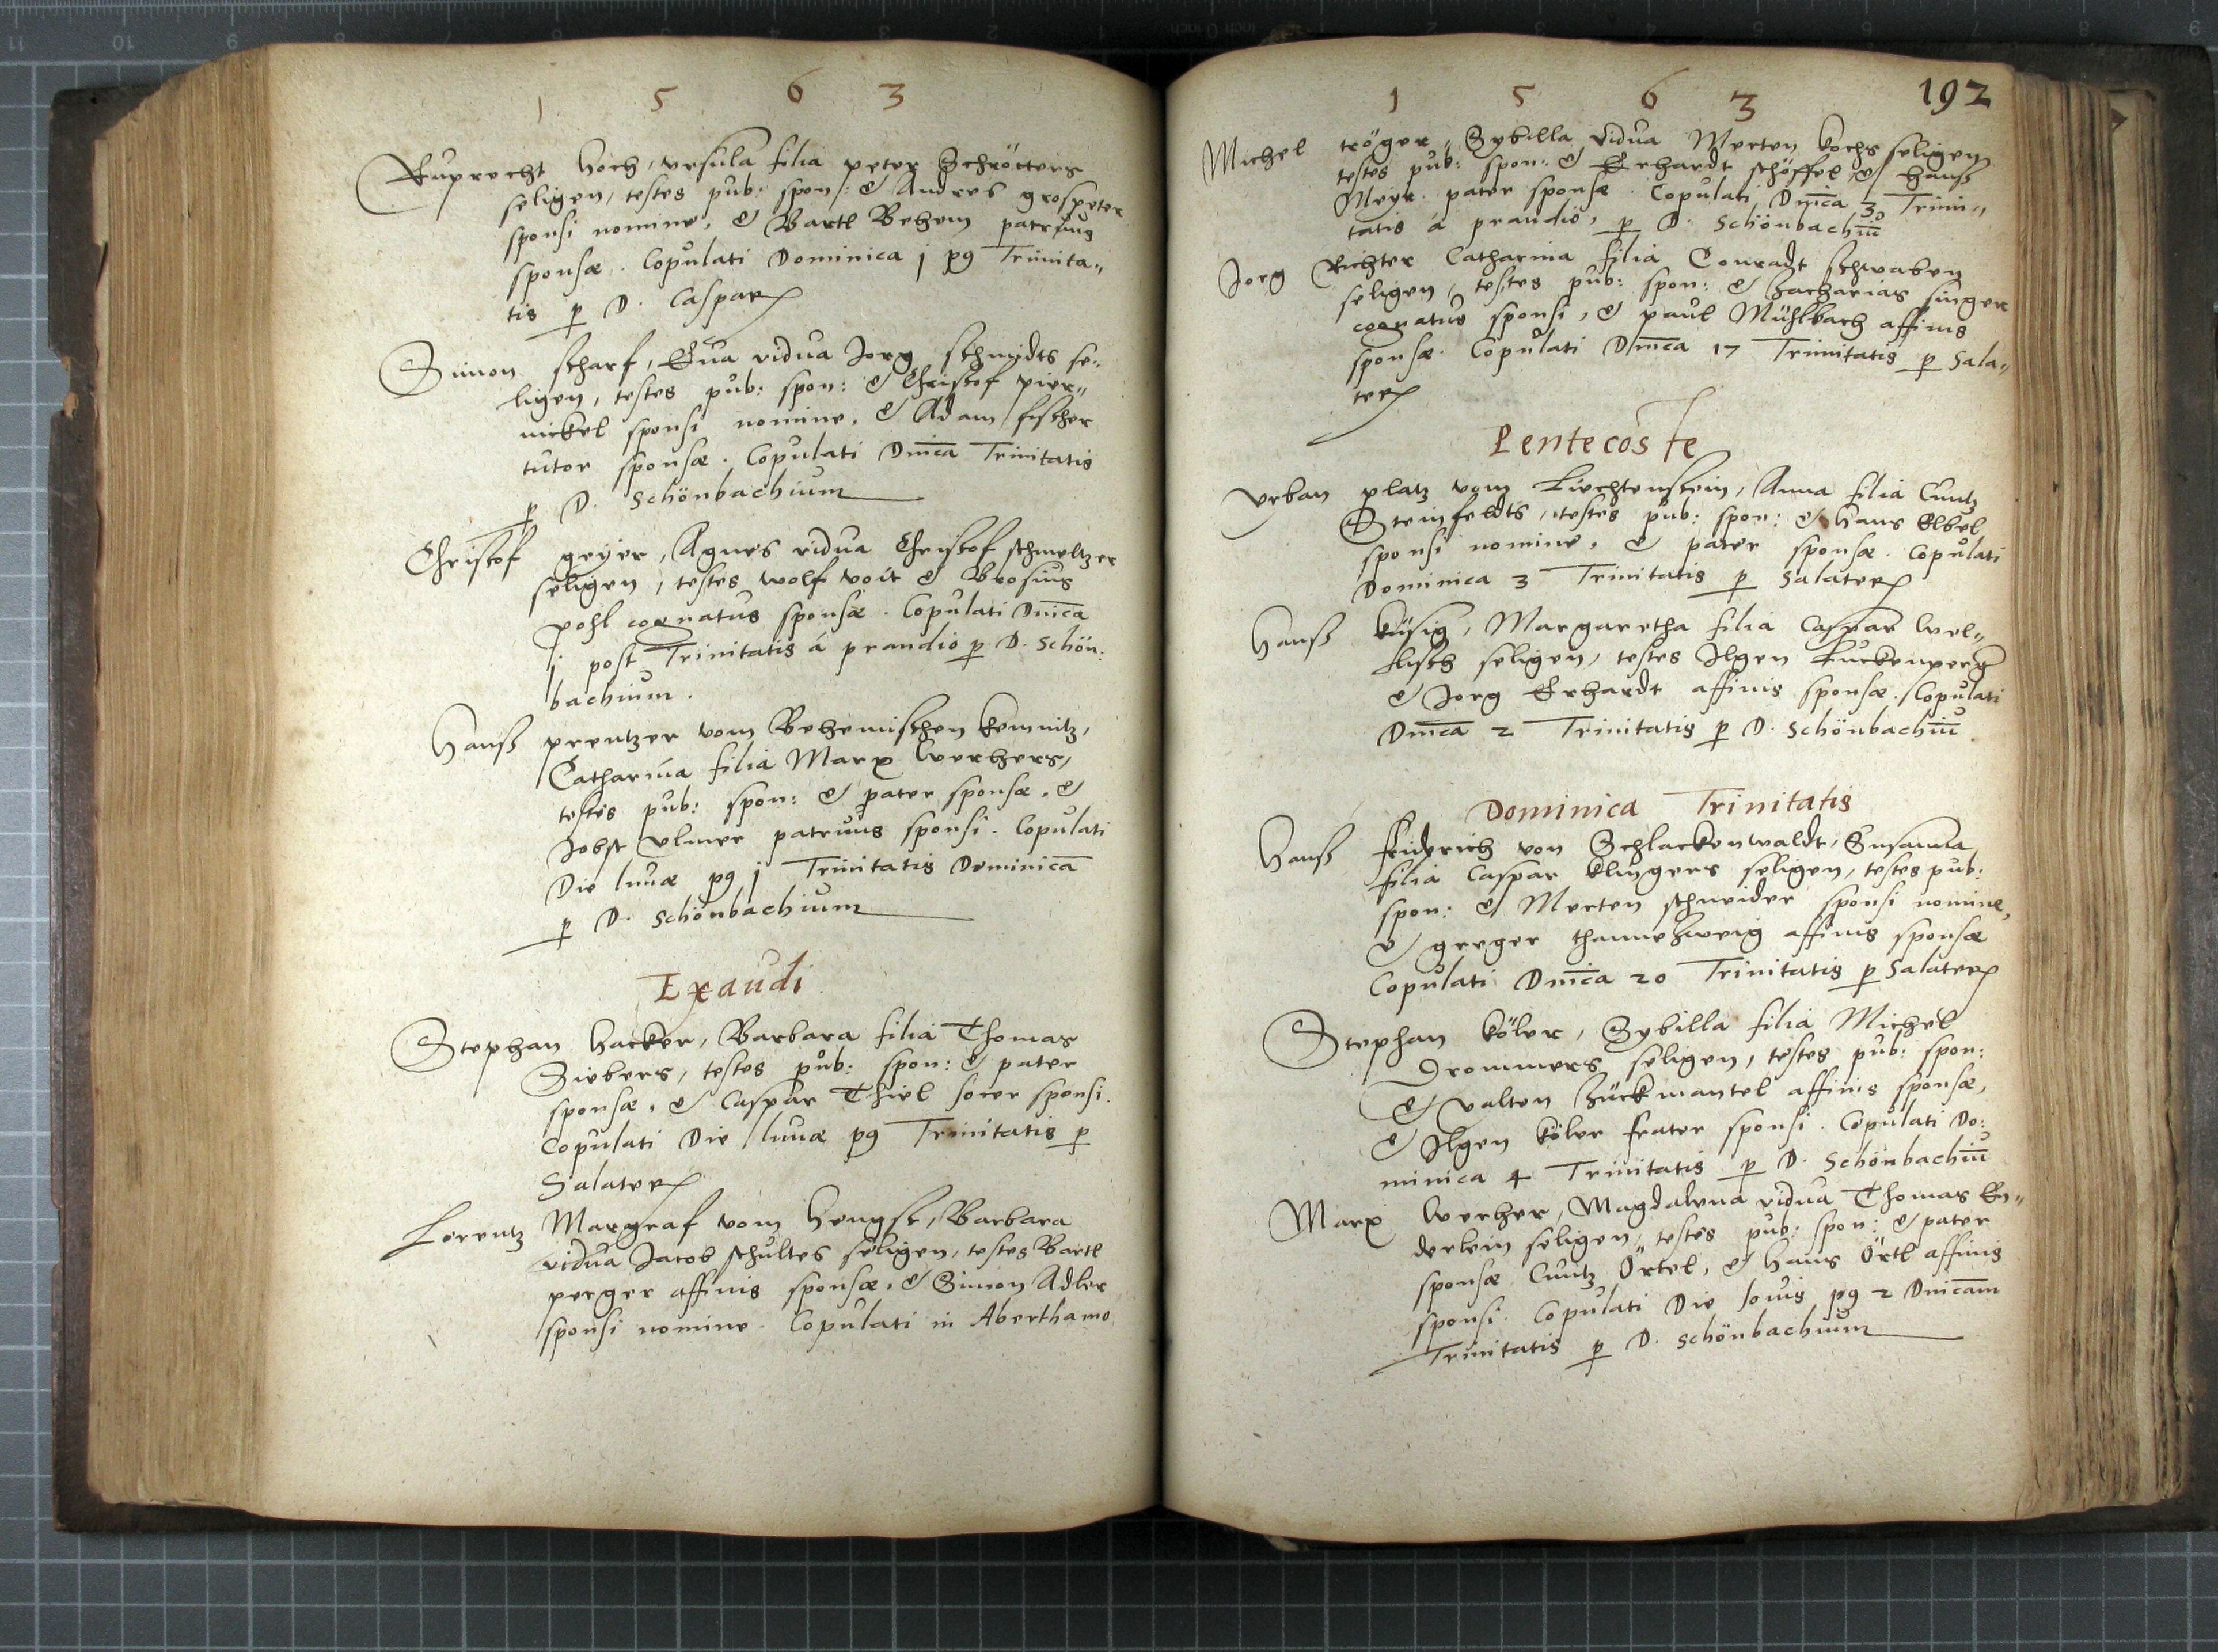 1 5 6 3
Ruprecht Hoch, Ursula filia peter Schrötters
seligen, testes pub: spon: & Andres grospeter
sponsi nomine, & Bartl Behem patruus
sponsæ. Copulati Dominica 1 pg Trinita„
tis p D. Caspar
Simon scharf, Eua vidua Jorg schmydts se„
ligen, testes pub: spon: & Christof pier„
nickel sponsi nomine, & Adam fischer
tutor sponsæ. Copulati Dnica Trinitatis
p D. Schönbachium
Christof geyer, Agnes vidua Christof schmeltzer
seligen, testes wolf voit & Brosius
pohl cognatus sponsæ. Copulati Dnica
1 post Trinitatis á prandio p D. Schön:
bachium.
Hanß prentzer vom Behemischen kemnitz,
Catharina filia Marx werhers,
testes pub: spon: & pater sponsæ, &
Jobst Ulmer patruus sponsi. Copulati
Die lunæ pg 1 Trinitatis Dominica
p D. Schönbachium
Exaudi
Stephan Hacker, Barbara filia Thomas
Siebers, testes pub: spon: & pater
sponsæ, & Caspar Thiel socer sponsi.
Copulati Die lunæ pg Trinitatis p
Salater
Lorentz Margraf vom Hengst, Barbara
vidua Jacob schultes seligen, testes Bartl
perger affinis sponsæ, & Simon Adler
sponsi nomine. Copulati in Aberthamo
1 5 6 3
192
Michel tröger, Sybilla vidua Merten kochs seligen
testes pub: spon: & Erhardt schöffel, & Hanß
Meyr pater sponsæ. Copulati Dnica 3 Trini„
tatis á prandio, p D. Schönbachiu
Jorg Richter Catharina filia Conradt schwaben
seligen, testes pub: spon: & Zacharias singer
cognatus sponsi, & paul Mühlbach affinis
sponsæ. Copulati Dnica 17 Trinitatis p Sala„
ter
Pentecoste
Urban platz vom Liechtenstein, Anna filia Cuntz
Steinfeldts, testes pub: spon: & Hans Elbel
sponsi nomine, & pater sponsæ. Copulati
Dominica 3 Trinitatis p Salater
Hanß küsig, Margaretha filia Caspar wel„
fisch seligen, testes Ilgen Luckenperg
& Jorg Erhardt affinis sponsæ. Copulati
Dnica 2 Trinitatis p D. Schönbachiu.
Dominica Trinitatis
Hanß friderich von Schlackenwaldt, Susanna
filia Caspar klingers seligen, testes pub:
spon: & Merten schneider sponsi nomine,
& greger thannezweig affinis sponsæ
Copulati Dnica 20 Trinitatis p Salater
Stephan köler, Sybilla filia Michel
Drommers seligen, testes pub: spon:
& Valten Zückmantel affinis sponsæ,
& Ilgen köler frater sponsi. Copulati Do:
minica 4 Trinitatis p D. Schönbachiu
Marx werher, Magdalena vidua Thomas En„
derlein seligen, testes pub: spon: & pater
sponsæ Cuntz Örtel, & Hans Örtl affinis
sponsi. Copulati Die Jouis pg 2 Dnicam
Trinitatis p D. Schönbachium